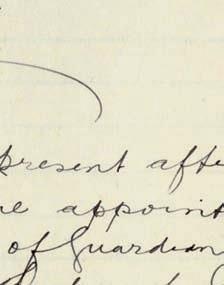 present afte
e appoint
of Guardian